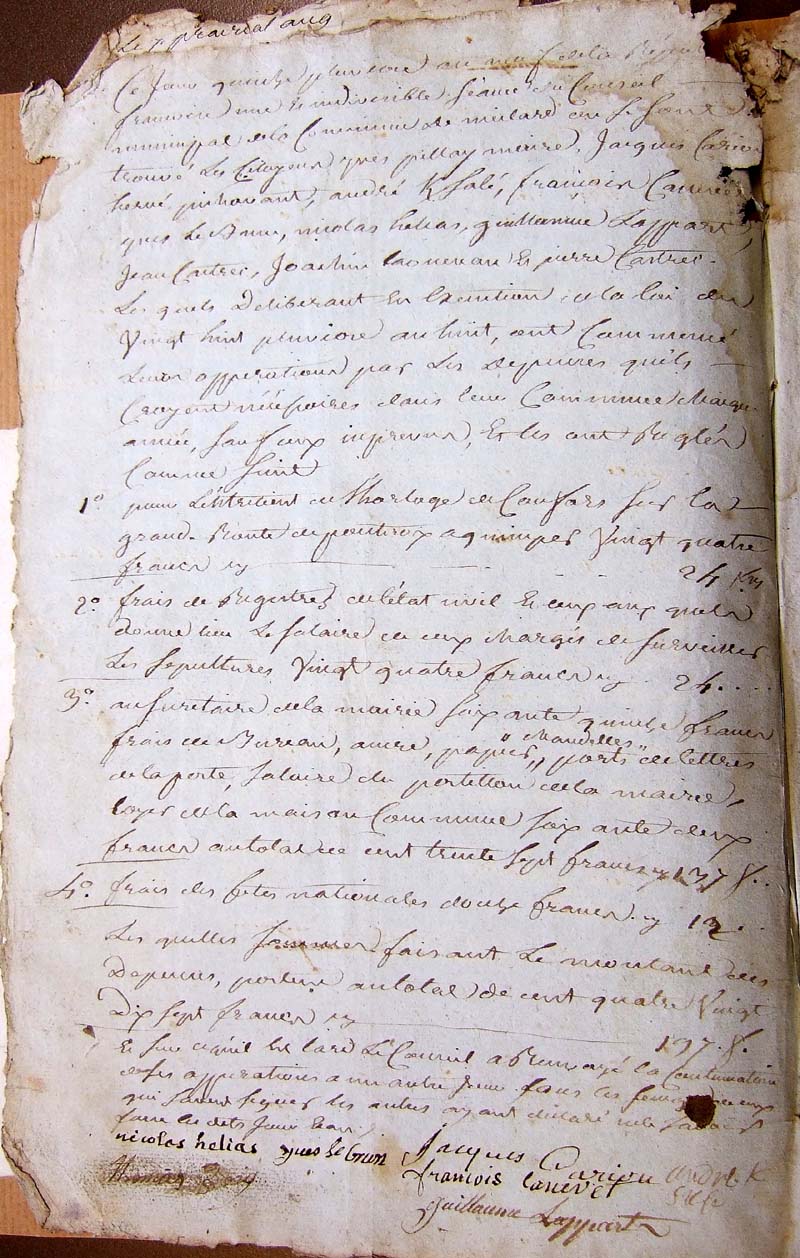 Le 7 prairial an 9
Ce Jour quinze pluviose an neuf de la Répu
francoise une Et indivisible, Séance du Conseil
municipal de la Commune de milard ou Se Sont
trouvé Les Citoyens yves pillay maire, Jacques Cariou
hervé, andré K Salé, françois Canevet
yves Le Brun, nicolas helias, guillaume Lappart,
Jean Carter, Joachim Et pierre Carter.
Les quels Deliberant En Execution de la loi du
Vingt huit pluviose an huit, ont Commencé
Leur opperations par Les Depenses quils
Croyent nécessaires dans leur Commune chaque
année, Sauf ceux imprevus, Et les ont Reglés
Comme Suit
1º pour L'Entretient de l'horloge de Confors Sur la
grand Route de pontcroix a quimper Vingt quatre
francs cy 24 frs
2º frais de Registres de l'état civil Et ceux aux quels
donne lieu Le Salaire de ceux chargés de Surveiller
Les Sepultures Vingt quatre francs cy 24....
3º au Secretaire de la mairie Soixante quinze francs
frais de Bureau, ancre, papier, " chandelles " ports de lettres
de la poste, Salaire du portillon de la mairie,
loyer de la maison Commune Soixante deux
francs au total de cent trente Sept francs cy 137 f..
4º frais des fetes nationales douze francs cy 12.
Les quelles Sommes faisant Le montant des
Depenses, portent au total de cent quatre Vingt
Dix Sept francs cy 197 f.
Et Sur ce quil Est tard Le Conseil a Renvoyé la Continuation
de ses opperations a un autre Jour Sous les Seings de ceux
qui Savent Signer les autres ayant déclaré ne le Savoir
faire les dits Jour Et an
nicolas helias yves le brun Jacques Cariou andré K
françois Canevet Salé
Guillaume Lappart